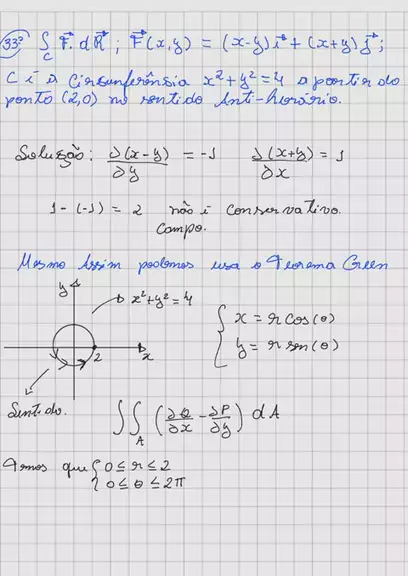 33ª ∫_C F⃗ · dR⃗ ; F⃗(x,y) = (x-y)i⃗ + (x+y)j⃗ ;
C é a Circunferência x² + y² = 4 a partir do
ponto (2,0) no sentido Anti-horário.
Solução: ∂(x-y)/∂y = -1 ∂(x+y)/∂x = 1
1 - (-1) = 2 não é conservativo.
Campo.
Mesmo Assim podemos usa o Teorema Green
y x² + y² = 4
x = r cos(θ)
y = r sen(θ)
2 x
Sentido. ∫∫_A (∂Q/∂x - ∂P/∂y) dA
Temos que { 0 ≤ r ≤ 2
0 ≤ θ ≤ 2π